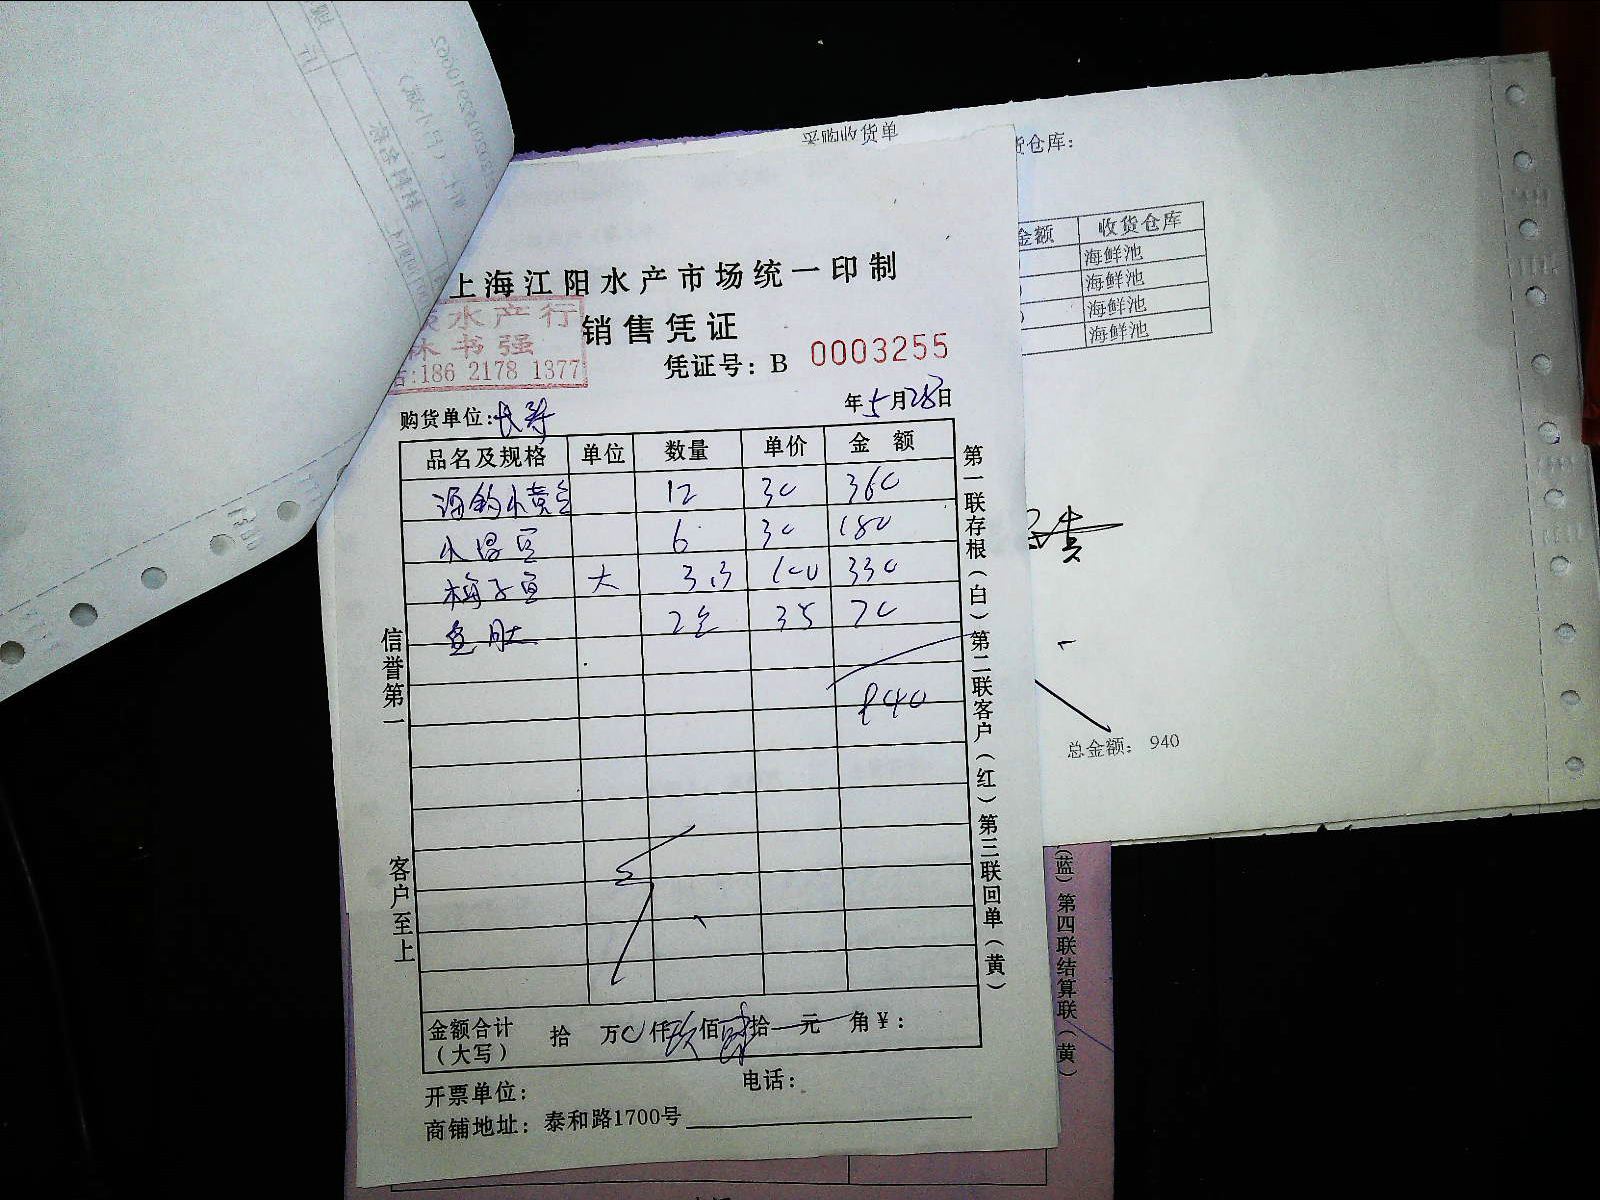 采购收货单
货仓库：
金额 收货仓库
海鲜池
海鲜池
海鲜池
海鲜池
总金额： 940
上海江阳水产市场统一印制
销售凭证
水产行
林书强
:186 2178 1377
凭证号：B 0003255
购货单位：长寿
年5月28日
品名及规格 单位 数量 单价 金额
海钓小黄鱼 12 30 360
6 30 180
梅子鱼 大 3.3 100 330
鱼肚 35 70
940
信誉第一
客户至上
第一联存根（白）第二联客户（红）第三联回单（黄）
金额合计（大写） 拾 万0仟玖佰肆拾 元 角¥：
开票单位：
电话：
商铺地址：泰和路1700号
（蓝）第四联结算联（黄）